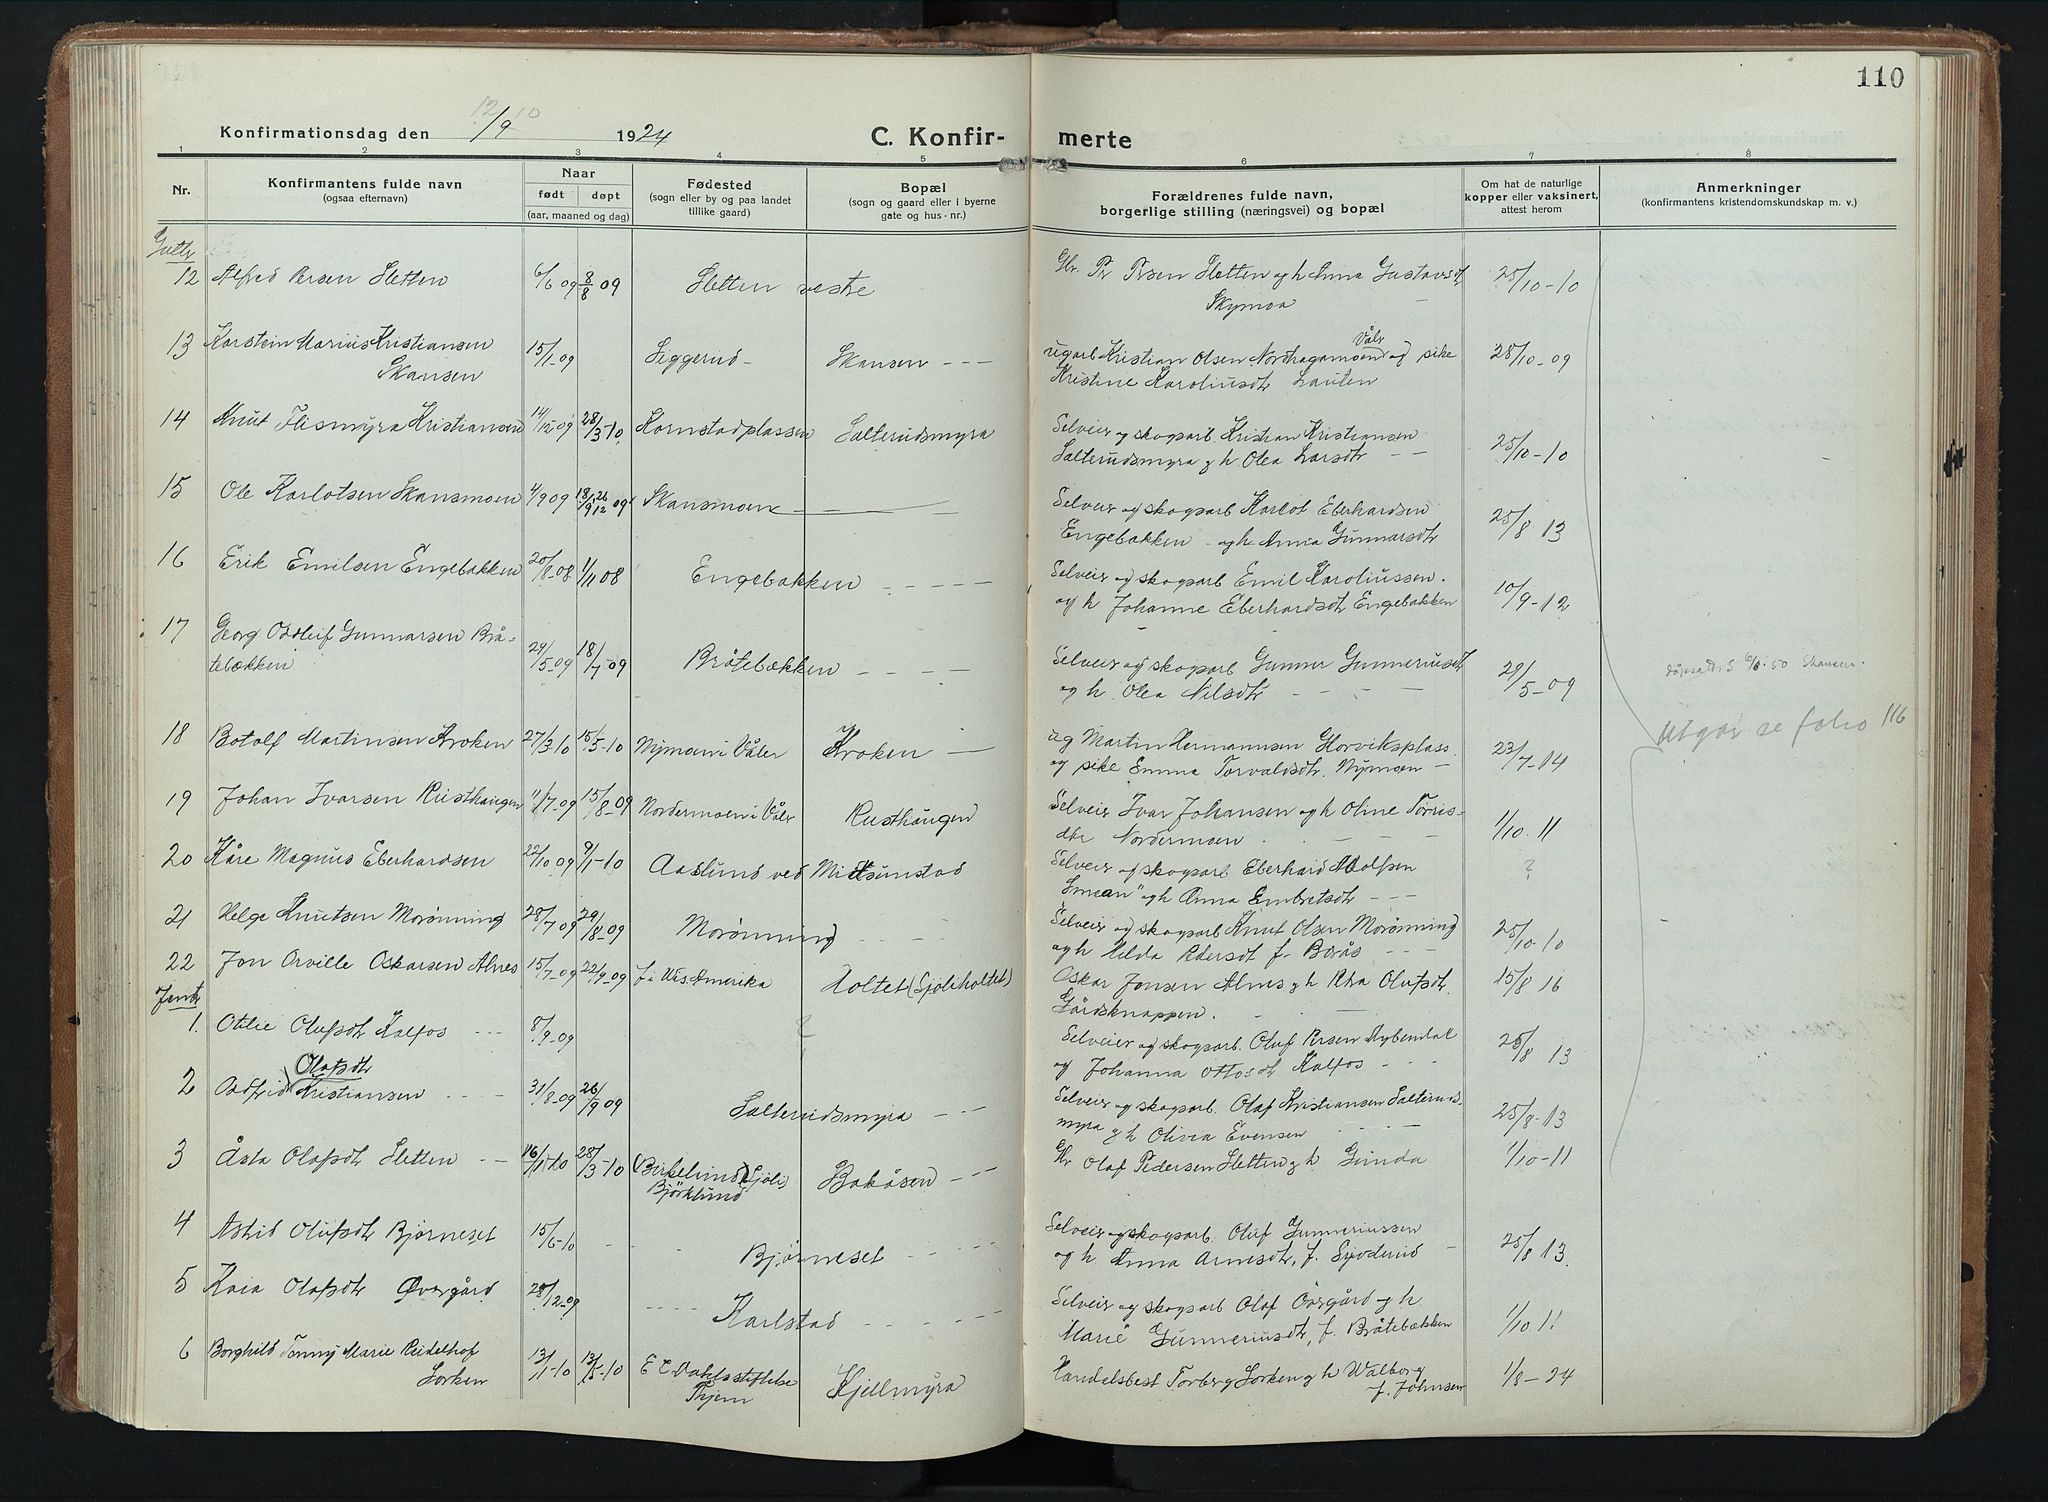 110
Konfirmationsdag den 12/9 10 1924
C. Konfirmerte
1 2 3 4 5 6 7 8
Nr.
Konfirmantens fulde navn
(ogsaa efternavn)
Naar
født døpt
(aar, maaned og dag)
Fødested
(sogn eller by og paa landet
tillike gaard)
Bopæl
(sogn og gaard eller i byerne
gate og hus - nr.)
Forældrenes fulde navn,
borgerlige stilling (næringsvei) og bopæl
Om hat de naturlige
kopper eller vaksinert,
attest herom
Anmerkninger
(konfirmantens kristendomskundskap m. v.)
Gutter
12 Alfred Persen Sletten 6/6 09 8/8 09 Sletten vestre Gbr. Pr Persen Sletten og h Anna Gustavsdt 25/10-10
Skymoa
13 Karstein Marius Kristiansen 15/1-09 Seggerud - Skansen - - - ugarb Kristian Olsen Nordhagamoen Våler og pike 28/10-09
Skansen Kristine Karoliusdtr Lauten
14 Knut Flismyra Kristiansen 14/12 09 28/3-10 Kornstadplassen Salterudsmyra Selveier og skogsarb. Kristian Kristiansen 25/10-10
Salterudsmyra og h Olea Larsdtr - -
15 Ole Karlotsen Skansmoen 4/9 09 18/9 26/12 09 Skansmoen - - - Selveier og skogsarb Karlot Eberhardsen 25/8 13
Engebakken og h Annia Gunnarsdtr
16 Erik Emilsen Engebakken 20/8-08 1/11 08 Engebakken - - - - Selveier og skogsarb Emil Karoliussen. 10/9-12
og h Johanne Eberhardsdt Engebakken
17 Georg Oddleif Gunnarsen Brå- 29/5-09 18/7 09 Bråtebækken - - - Selveier og skogsarb Gunnar Gunneriusdt 29/5-09
tebækken og h. Olea Nilsdtr - - - -
døpsatt. 5 6/6-50 Skansen.
Utgår se folio 116
18 Botolf Martinsen Kroken 27/3-10 15/5-10 Nymoen i Våler Kroken - ug Martin Hermannsen Horviksplass 23/7-14
og pike Emma Torvaldsdtr. Nymoen -
19 Johan Ivarsen Rusthaugen 11/7-09 15/8-09 Nordermoen i Våler Rusthaugen Selveier Ivar Johansen og h Oline Torris- 1/10. 11
dtr Nordermoen . - - -
20 Kåre Magnus Eberhardsen 22/10 09 9/1-10 Aaslund ved Midtsunstad Selveier og skogsarb Eberhard Adolfsen ?
Smeen" og h Anna Embretsdtr - - -
21 Helge Knutsen Morønning 28/7 09 29/8-09 Morønning - - Selveier og skogsarb Knut Olsen Morønning 25/10-10
og h Hilda Pedersdt f. Borås - -
22 Jon Orville Oskarsen Alnes 15/7-09 22/9-09 f. i Wis. Amerika Holtet (Sjøliholtet) Oskar Jonsen Alnes og h Rha Olufsdt. 15/8 16
Gårdsknappen. - - -
Jenter
1. Otilie Olufsdtr Kalfos - - - 8/9-09 ? Selveier og skogsarb. Oluf Persen Rybendal 25/8 13
og Johanna Ottosdtr Kalfos - -
2 Oddfrid Olafsdtr Kristiansen - - - - 31/8-09 26/9 09 Salterudsmyra - - - Selveier og skogsarb. Olaf Kristiansen Salteruds- 25/8-13
myra og h Olivia Evensen - - - -
3 Åsta Olafsdtr Sletten - - 16/1-10 28/3-10 (Birkelund) Sjøli) Bakåsen - - - Gbr Olaf Pedersen Sletten og h Gunda 1/10-11
Bjørklund
4 Astrid Olufsdtr Bjørneset 15/6-10 - - - Bjørneset - - - - Selveier og skogsarb. Oluf Gunneriussen 25/8 13.
og h Anna Arnesdtr, f. Syverud -
5 Kaia Olafsdtr Øvergård 28/12-09 - - - - Karlstad - - - - Selveier og skogsarb Olaf Øvergård og h. 1/10. 11
Marie Gunneriusdtr, f. Bråtebækken
6 Borghild Tenny Marie Reidelhof 13/1-10 13/5-10 E C Dahls stiftelse Kjellmyra Handelsbest Torberg Lorken og h Walborg 1/8-24
Lorken Thjem f. Johnsen